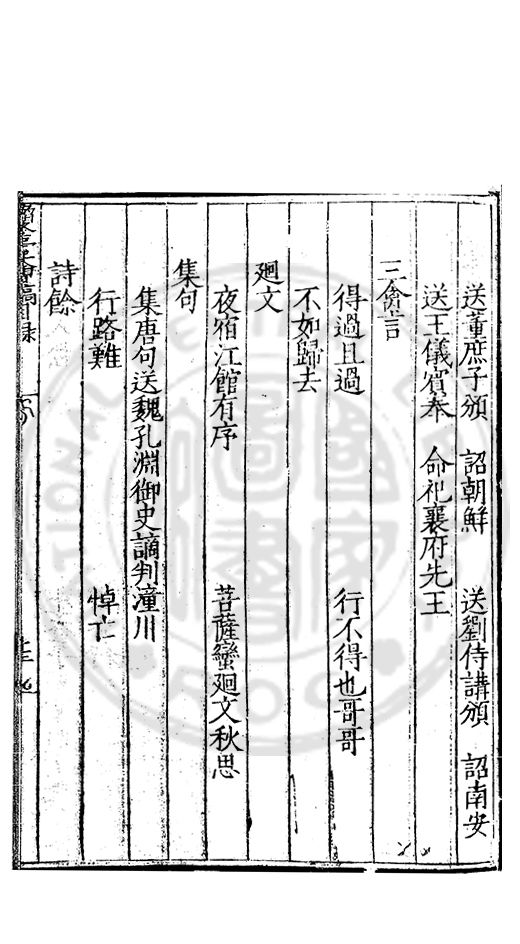 送董庶子頒　詔朝鮮　送劉侍講頒　詔南安
送王儀賓奉　命祀襄府先王
三禽言
得過且過　行不得也哥哥
不如歸去
廻文
夜宿江館有序　菩薩蠻廻文秋思
集句
集唐句送魏孔淵御史謫判潼川
行路難　悼亡
詩餘